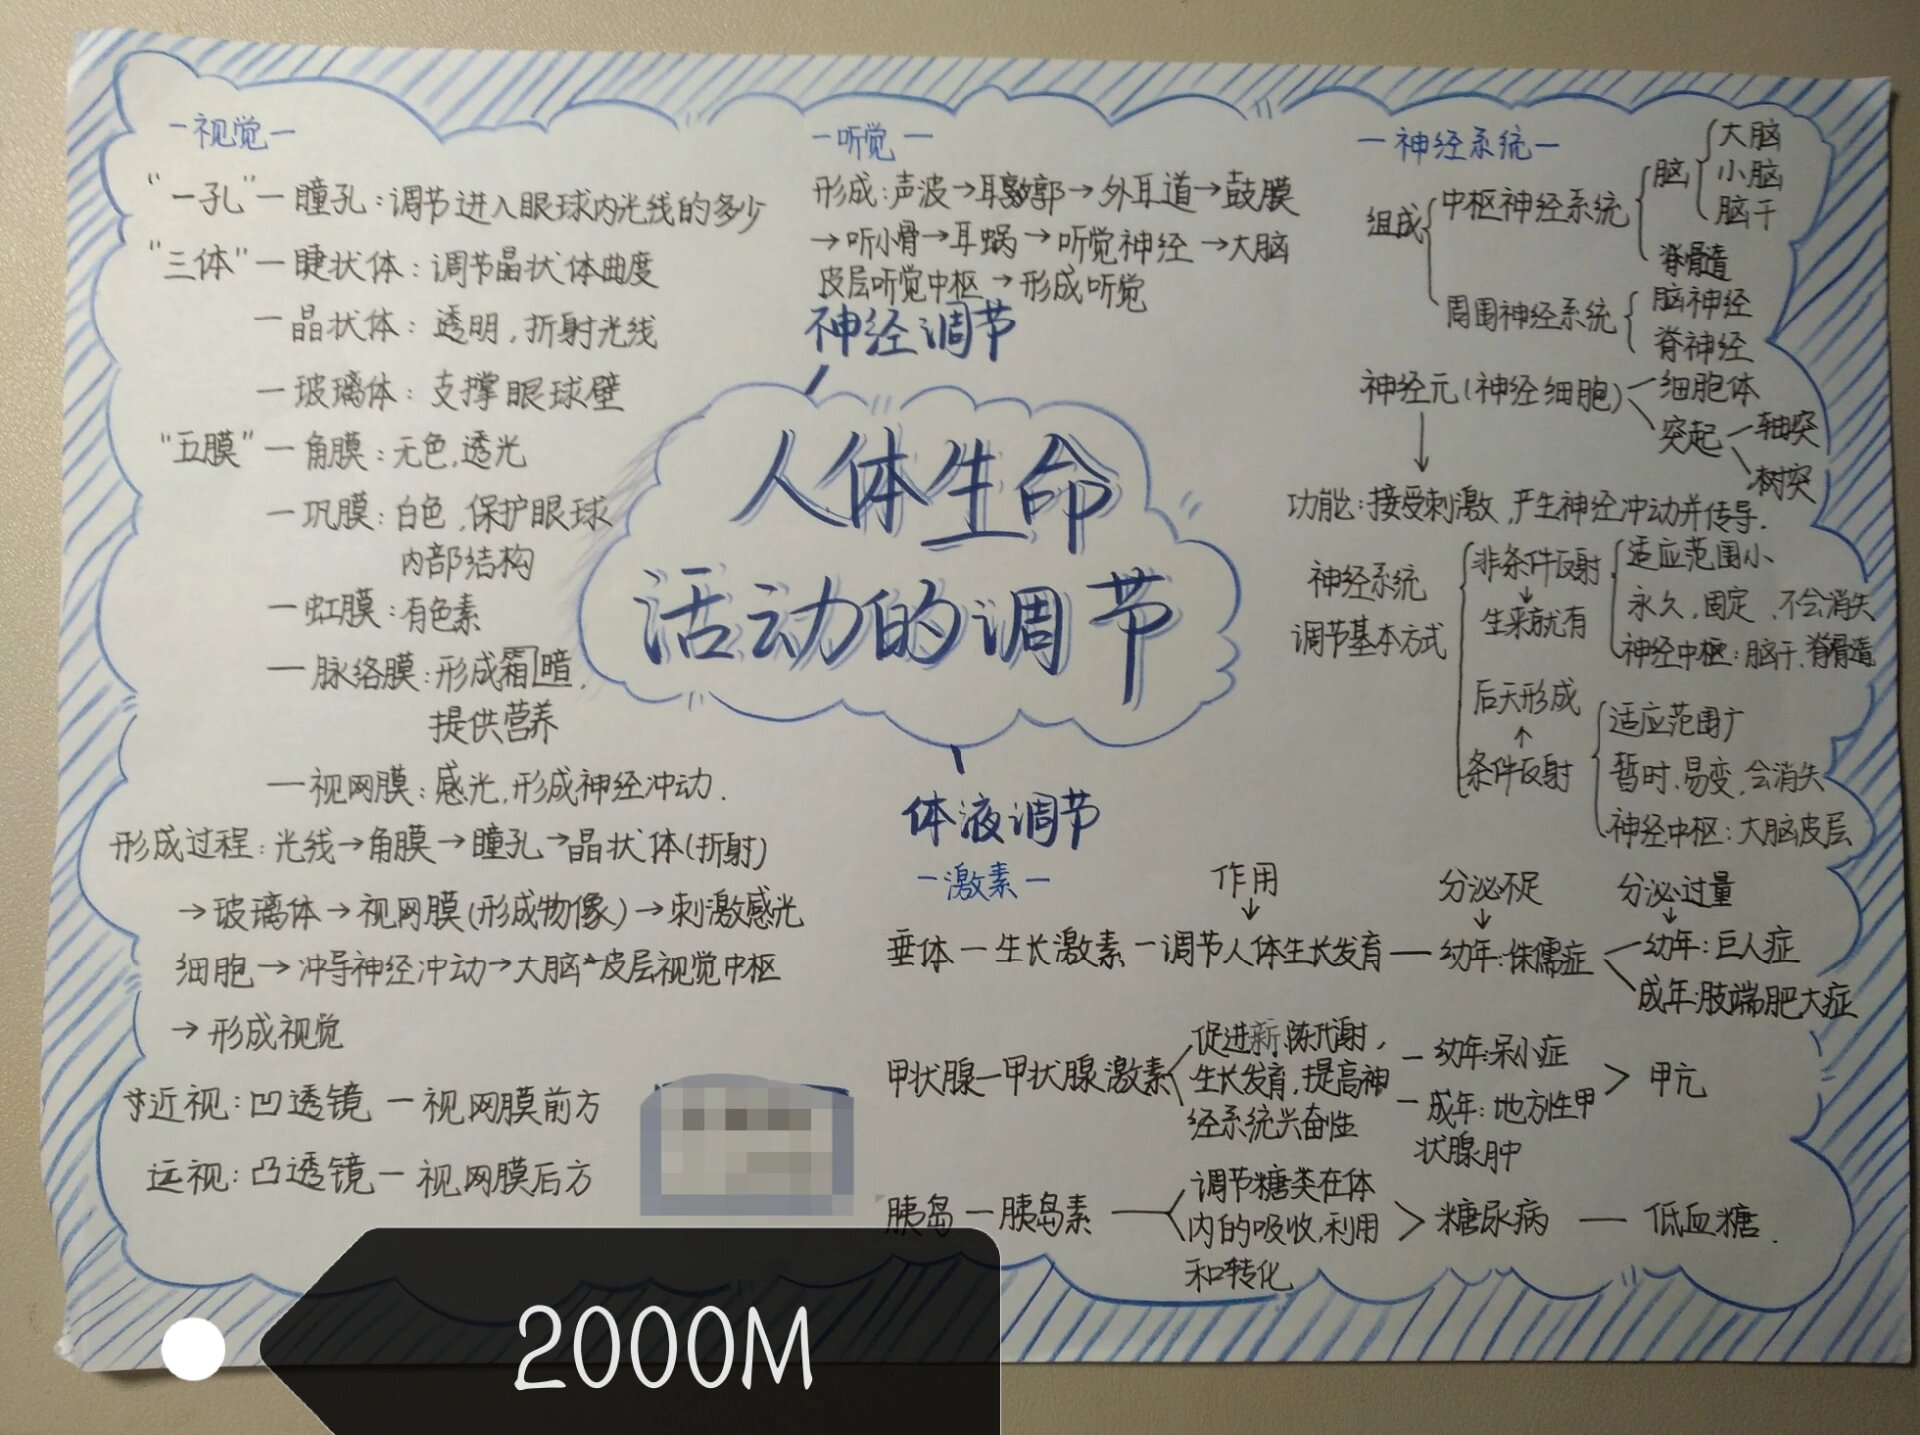 人体生命
活动的调节
神经调节
-视觉-
"一孔"-瞳孔:调节进入眼球内光线的多少
"三体"-睫状体:调节晶状体曲度
-晶状体:透明,折射光线
-玻璃体:支撑眼球壁
"五膜"-角膜:无色,透光
-巩膜:白色,保护眼球
内部结构
-虹膜:有色素
-脉络膜:形成暗,
提供营养
-视网膜:感光,形成神经冲动.
形成过程:光线→角膜→瞳孔→晶状体(折射)
→玻璃体→视网膜(形成物像)→刺激感光
细胞→冲导神经冲动→大脑皮层视觉中枢
→形成视觉
近视:凹透镜-视网膜前方
远视:凸透镜-视网膜后方
-听觉-
形成:声波→耳郭→外耳道→鼓膜
→听小骨→耳蜗→听觉神经→大脑
皮层听觉中枢→形成听觉
-神经系统-
组成
中枢神经系统
脑
大脑
小脑
脑干
脊髓
周围神经系统
脑神经
脊神经
神经元(神经细胞)
细胞体
突起
轴突
树突
功能:接受刺激,产生神经冲动并传导.
神经系统
调节基本方式
非条件反射
↓
生来就有
适应范围小
永久,固定、不会消失
神经中枢:脑干、脊髓
后天形成
↑
条件反射
适应范围广
暂时、易变,会消失
神经中枢:大脑皮层
体液调节
-激素-
作用
分泌不足
分泌过量
垂体-生长激素-调节人体生长发育-幼年:侏儒症
幼年:巨人症
成年:肢端肥大症
甲状腺-甲状腺激素
促进新陈代谢,
生长发育,提高神
经系统兴奋性
-幼年:呆小症
-成年:地方性甲
状腺肿
> 甲亢
胰岛-胰岛素
调节糖类在体
内的吸收,利用
和转化
>糖尿病-低血糖.
2000M